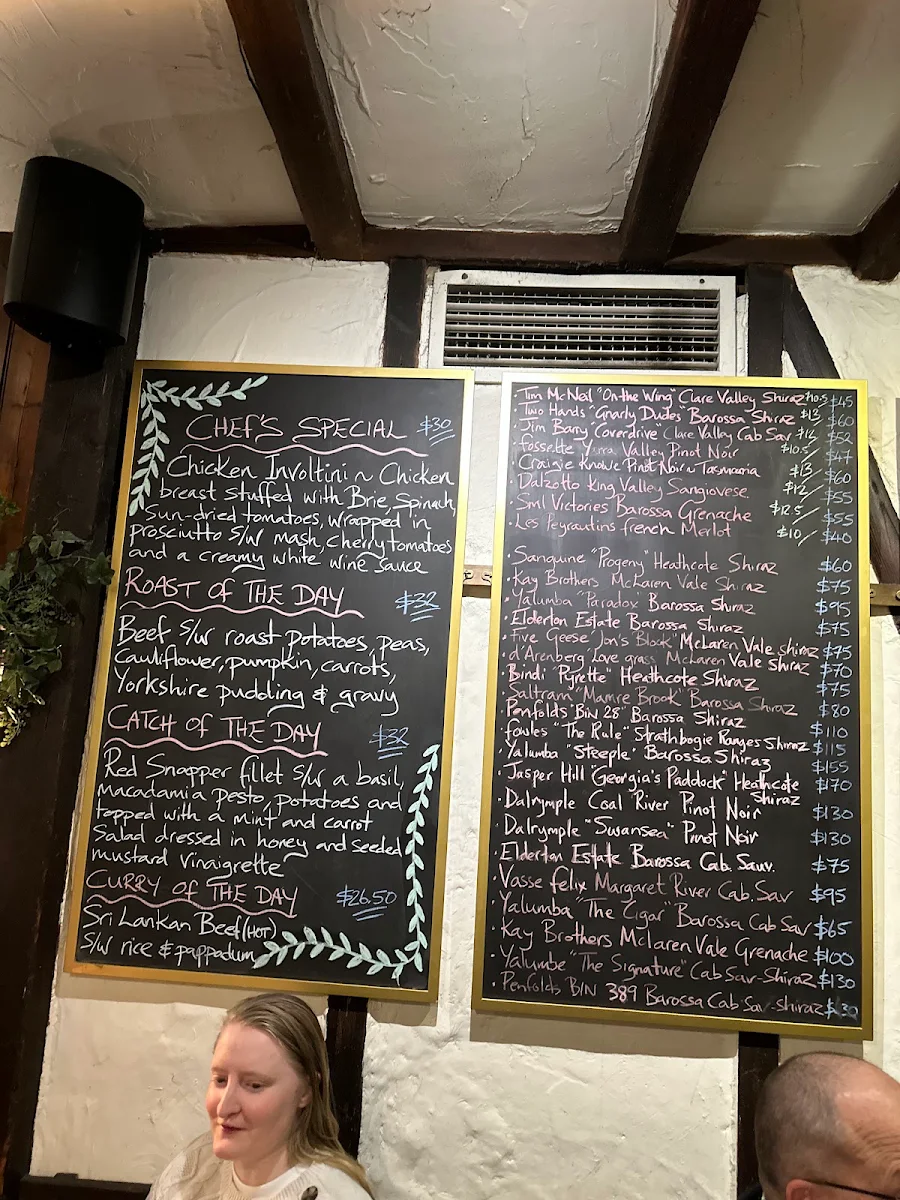 CHEF'S SPECIAL $30
Chicken Involtini ~ Chicken
breast stuffed with Brie, Spinach,
Sun-dried tomatoes, wrapped in
prosciutto S/W mash, cherry tomatoes
and a creamy white wine sauce
ROAST OF THE DAY $32
Beef S/W roast potatoes, peas,
Cauliflower, pumpkin, carrots,
Yorkshire pudding & gravy
CATCH OF THE DAY $32
Red Snapper fillet S/W a basil,
Macadamia pesto, potatoes and
topped with a mint and carrot
Salad dressed in honey and seeded
mustard vinaigrette
CURRY OF THE DAY $26.50
Sri Lankan Beef (HOT)
S/W rice & pappadum
· Tim McNeil "On the Wing" Clare Valley Shiraz $10.5 $45
· Two Hands "Gnarly Dudes" Barossa Shiraz $13/ $60
· Jim Barry "Coverdrive" Clare Valley Cab Sav $12/ $52
· Fossette Yarra Valley Pinot Noir $10.5/ $47
· Craigie Knowe Pinot Noir Tasmania $13/ $60
· Dalzotto King Valley Sangiovese $12/ $55
· Sml Victories Barossa Grenache $12.5/ $55
· Les Peyrautins french Merlot $10/ $40
· Sanguine "Progeny" Heathcote Shiraz $60
· Kay Brothers McLaren Vale Shiraz $75
· Yalumba "Paradox" Barossa Shiraz $95
· Elderton Estate Barossa Shiraz $75
· Five Geese "Jon's Block" McLaren Vale shiraz $75
· d'Arenberg Love grass McLaren Vale Shiraz $70
· Bindi "Pyrette" Heathcote Shiraz $75
· Saltram "Mamre Brook" Barossa Shiraz $80
· Penfolds "BIN 28" Barossa Shiraz $110
· fowles "The Rule" Strathbogie Ranges Shiraz $115
· Yalumba "Steeple" Barossa Shiraz $155
· Jasper Hill "Georgia's Paddock" Heathcote $170
Shiraz
· Dalrymple Coal River Pinot Noir $130
· Dalrymple "Swansea" Pinot Noir $130
· Elderton Estate Barossa Cab. Sauv. $75
· Vasse felix Margaret River Cab. Sav $95
· Yalumba "The Cigar" Barossa Cab Sav $65
· Kay Brothers McLaren Vale Grenache $100
· Yalumba "The Signature" Cab Sav-Shiraz $130
· Penfolds BIN 389 Barossa Cab Sav-Shiraz